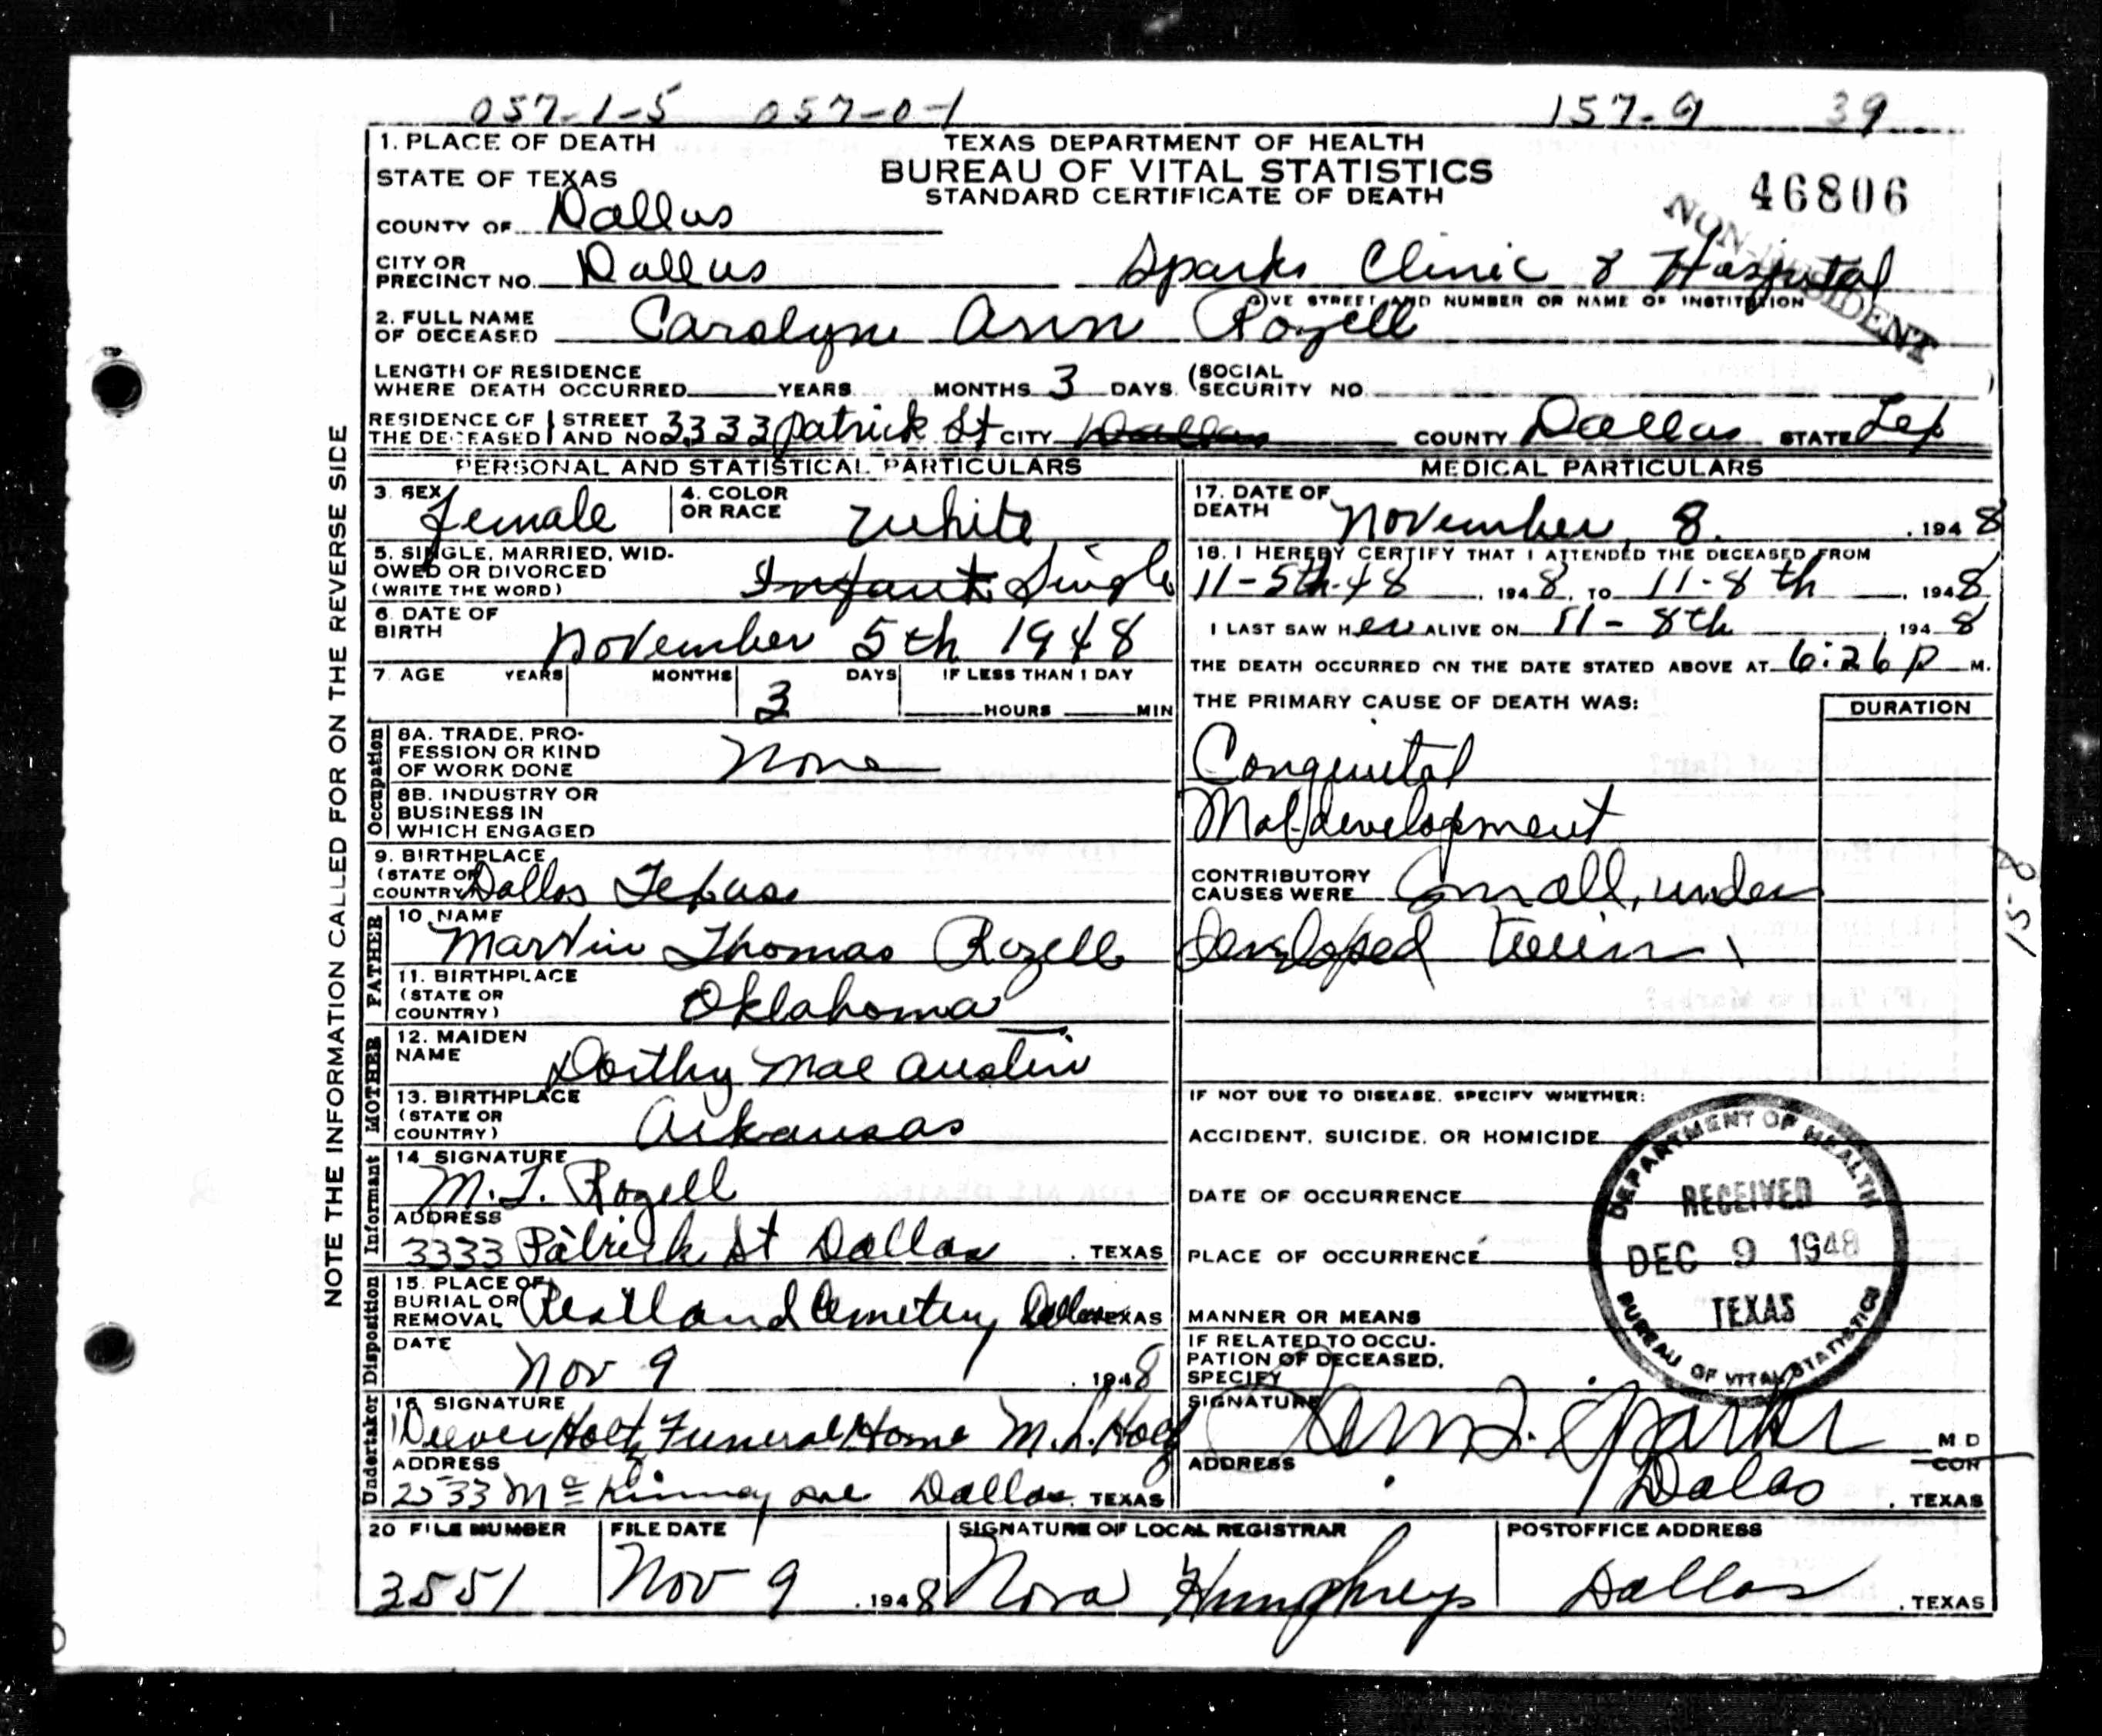 057-1-5 057-0-1 157-9 39
1. PLACE OF DEATH
TEXAS DEPARTMENT OF HEALTH
STATE OF TEXAS
BUREAU OF VITAL STATISTICS
STANDARD CERTIFICATE OF DEATH
46806
NON-RESIDENT
COUNTY OF Dallas
CITY OR PRECINCT NO. Dallas Sparks Clinic & Hospital
GIVE STREET AND NUMBER OR NAME OF INSTITUTION
2. FULL NAME OF DECEASED Carolyn Ann Rozell
LENGTH OF RESIDENCE
WHERE DEATH OCCURRED YEARS MONTHS 3 DAYS. (SOCIAL SECURITY NO. )
RESIDENCE OF THE DECEASED STREET AND NO. 3333 Patrick St CITY Dallas COUNTY Dallas STATE Tex
PERSONAL AND STATISTICAL PARTICULARS
3. SEX female 4. COLOR OR RACE White
5. SINGLE, MARRIED, WIDOWED OR DIVORCED (WRITE THE WORD) Infant Single
6. DATE OF BIRTH November 5th 1948
7. AGE YEARS MONTHS 3 DAYS IF LESS THAN 1 DAY HOURS MIN
Occupation
8A. TRADE, PROFESSION OR KIND OF WORK DONE None
8B. INDUSTRY OR BUSINESS IN WHICH ENGAGED
9. BIRTHPLACE (STATE OR COUNTRY) Dallas Texas
FATHER
10. NAME Martin Thomas Rozell
11. BIRTHPLACE (STATE OR COUNTRY) Oklahoma
MOTHER
12. MAIDEN NAME Dorthy Mae Austin
13. BIRTHPLACE (STATE OR COUNTRY) Arkansas
Informant
14 SIGNATURE M.T. Rozell
ADDRESS 3333 Patrick St Dallas, TEXAS
Disposition
15. PLACE OF BURIAL OR REMOVAL Restland Cemetery Dallas TEXAS
DATE Nov 9 , 1948
Undertaker
16 SIGNATURE Holtz Funeral Home M. L.
ADDRESS 2533 McKinney Ave Dallas, TEXAS
MEDICAL PARTICULARS
17. DATE OF DEATH November 8. , 1948
18. I HEREBY CERTIFY THAT I ATTENDED THE DECEASED FROM
11-5th-48 , 1948, TO 11-8th , 1948
I LAST SAW Her ALIVE ON 11-8th , 1948
THE DEATH OCCURRED ON THE DATE STATED ABOVE AT 6:26 P M.
THE PRIMARY CAUSE OF DEATH WAS: DURATION
Congenital
Mal-development
CONTRIBUTORY CAUSES WERE Small, under
developed twin
15-8
IF NOT DUE TO DISEASE, SPECIFY WHETHER:
ACCIDENT, SUICIDE, OR HOMICIDE
DATE OF OCCURRENCE
PLACE OF OCCURRENCE
MANNER OR MEANS
IF RELATED TO OCCUPATION OF DECEASED, SPECIFY
DEPARTMENT OF HEALTH
RECEIVED
DEC 9 1948
TEXAS
BUREAU OF VITAL STATISTICS
SIGNATURE Sparks M D
COR
ADDRESS Dallas, TEXAS
20 FILE NUMBER FILE DATE SIGNATURE OF LOCAL REGISTRAR POSTOFFICE ADDRESS
3551 Nov 9 , 1948 Nora Humphreys Dallas, TEXAS
NOTE THE INFORMATION CALLED FOR ON THE REVERSE SIDE